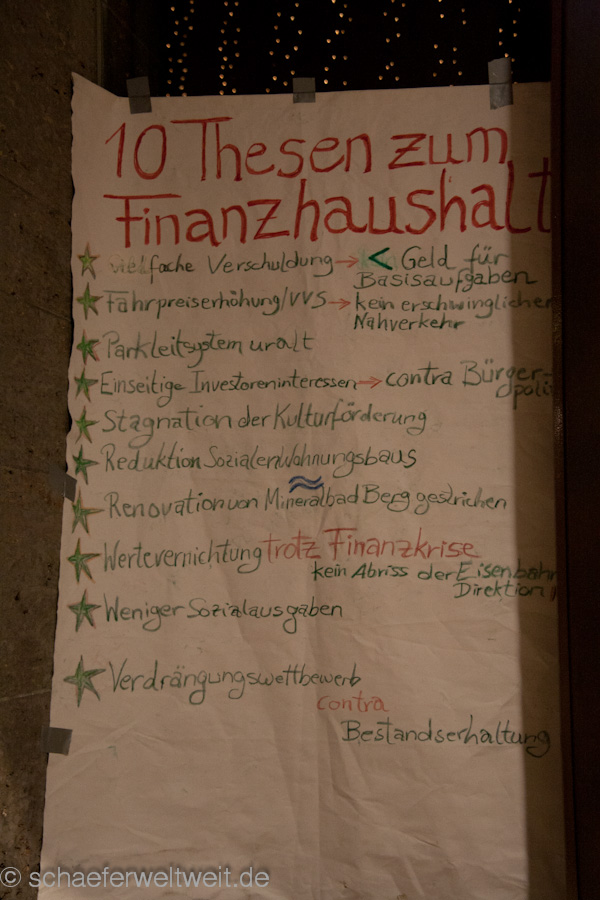 10 Thesen zum
Finanzhaushalt
vielfache Verschuldung → < Geld für
Basisaufgaben
Fahrpreiserhöhung/VVS → kein erschwinglicher
Nahverkehr
Parkleitsystem uralt
Einseitige Investoreninteressen → contra Bürger-
poli
Stagnation der Kulturförderung
Reduktion Sozialen Wohnungsbaus
Renovation von Mineralbad Berg gestrichen
Wertevernichtung trotz Finanzkrise
kein Abriss der Eisenbahn
Direktion
Weniger Sozialausgaben
Verdrängungswettbewerb
contra
Bestandserhaltung
© schaeferweltweit.de